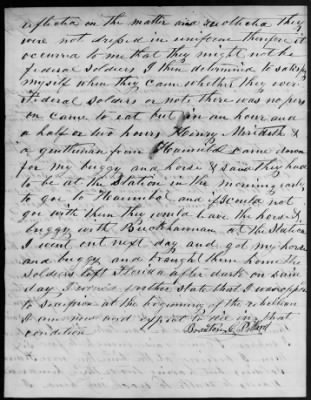 reflected on the matter and recollected they
were not dressed in uniform therefore it
occurred to me that they might not be
federal soldiers I then determined to satisfy
myself when they came whether they were
Federal soldiers or not. there was no pers
on came to eat but in an hour and
a half or two hours Henry Meredeth &
a gentleman from Hannibal came down
for my buggy and horse & said they had
to be at the Station in the morning early
to go to Hannibal and if I would not
go with them they would leave the horse &
buggy with Buckhannan at the Station
I went out next day and got my horse
and buggy and brought them home the
soldiers left Florida after dark on same
day I would further state that I was opposed
to at the beginning of the rebellion
I am now and expect to die in that
condition Braxton Pollard